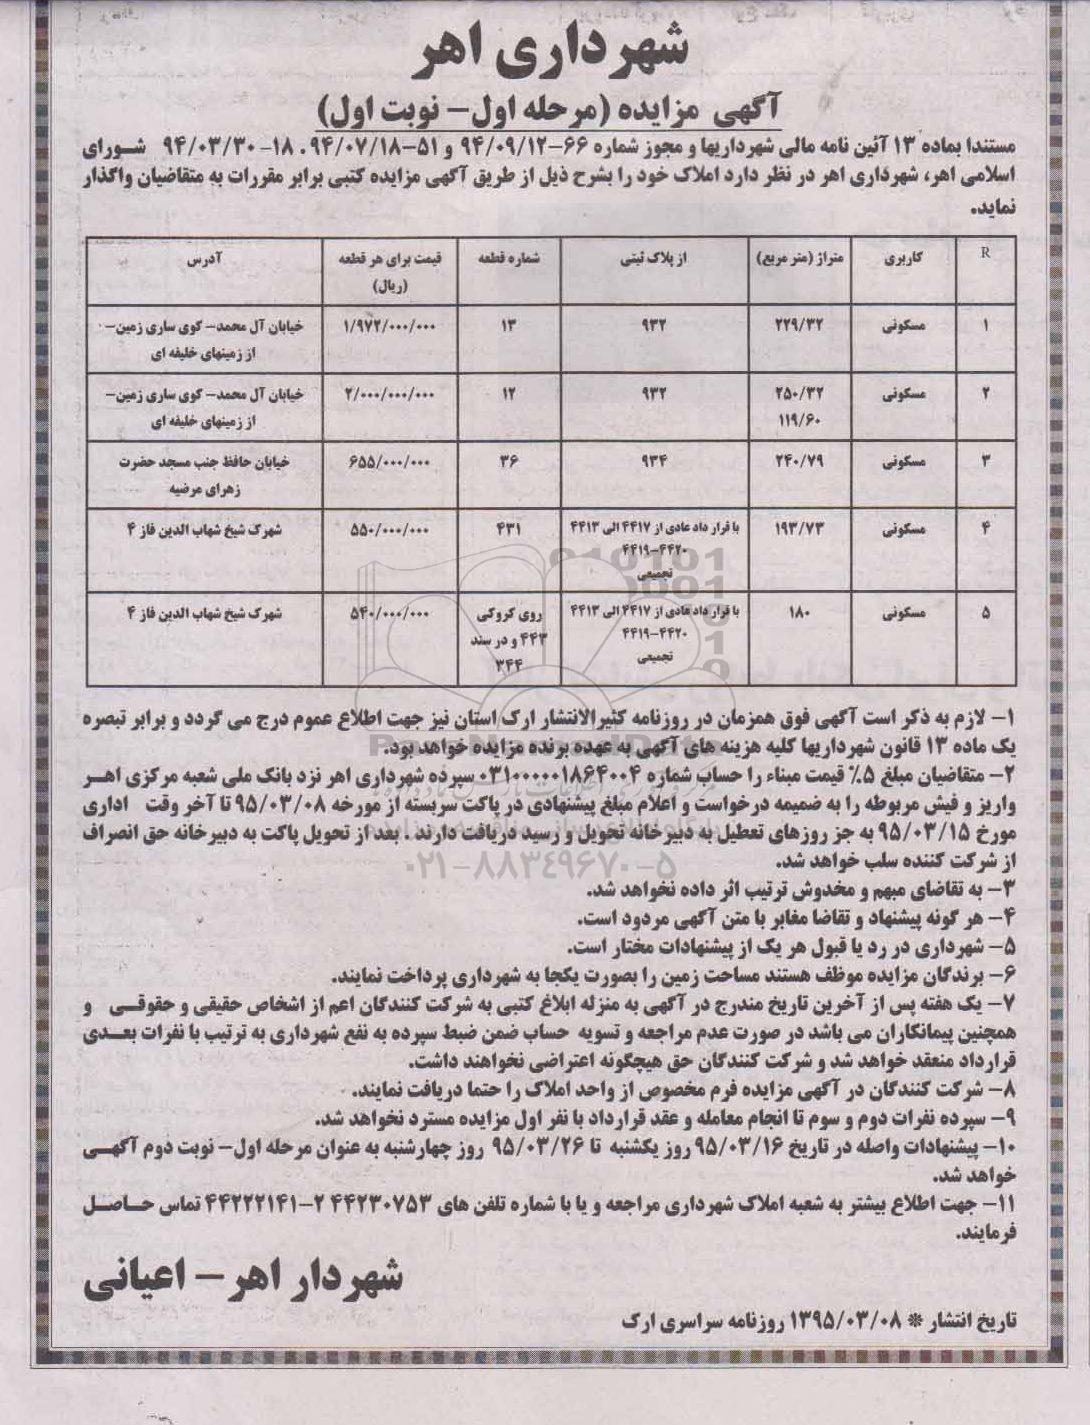 شهرداری اهر
آگهی مزایده (مرحله اول- نوبت اول)
مستندا بماده ۱۳ آئین نامه مالی شهرداریها و مجوز شماره ۶۶-۹۴/۰۹/۱۲ و ۵۱-۹۴/۰۷/۱۸ ۰ ۱۸-۹۴/۰۳/۳۰ شورای
اسلامی اهر، شهرداری اهر در نظر دارد املاک خود را بشرح ذیل از طریق آگهی مزایده کتبی برابر مقررات به متقاضیان واگذار
نماید.
R کاربری متراژ (متر مربع) از پلاک ثبتی شماره قطعه قیمت برای هر قطعه آدرس
(ریال)
۱ مسکونی ۲۲۹/۳۲ ۹۳۲ ۱۳ ۱/۹۷۲/۰۰۰/۰۰۰ خیابان آل محمد- کوی ساری زمین-
از زمینهای خلیفه ای
۲ مسکونی ۲۵۰/۳۲ ۹۳۲ ۱۲ ۲/۰۰۰/۰۰۰/۰۰۰ خیابان آل محمد- کوی ساری زمین-
۱۱۹/۶۰ از زمینهای خلیفه ای
۳ مسکونی ۲۴۰/۷۹ ۹۳۴ ۳۶ ۶۵۵/۰۰۰/۰۰۰ خیابان حافظ جنب مسجد حضرت
زهرای مرضیه
۴ مسکونی ۱۹۳/۷۳ با قرار داد عادی از ۴۴۱۷ الی ۴۴۱۳ ۴۳۱ ۵۵۰/۰۰۰/۰۰۰ شهرک شیخ شهاب الدین فاز ۴
۴۴۱۹-۴۴۲۰
تجمیعی
۵ مسکونی ۱۸۰ با قرار داد عادی از ۴۴۱۷ الی ۴۴۱۳ روی کروکی ۵۴۰/۰۰۰/۰۰۰ شهرک شیخ شهاب الدین فاز ۴
۴۴۱۹-۴۴۲۰ ۴۴۳ و در سند
تجمیعی ۳۴۴
۱- لازم به ذکر است آگهی فوق همزمان در روزنامه کثیرالانتشار ارک استان نیز جهت اطلاع عموم درج می گردد و برابر تبصره
یک ماده ۱۳ قانون شهرداریها کلیه هزینه های آگهی به عهده برنده مزایده خواهد بود.
۲- متقاضیان مبلغ ۵٪ قیمت مبناء را حساب شماره ۰۳۱۰۰۰۰۰۱۸۶۴۰۰۴ سپرده شهرداری اهر نزد بانک ملی شعبه مرکزی اهر
واریز و فیش مربوطه را به ضمیمه درخواست و اعلام مبلغ پیشنهادی در پاکت سربسته از مورخه ۹۵/۰۳/۰۸ تا آخر وقت اداری
مورخ ۹۵/۰۳/۱۵ به جز روزهای تعطیل به دبیرخانه تحویل و رسید دریافت دارند . بعد از تحویل پاکت به دبیرخانه حق انصراف
از شرکت کننده سلب خواهد شد.
۰۲۱-۸۸۳۴۹۶۷۰-۵
۳- به تقاضای مبهم و مخدوش ترتیب اثر داده نخواهد شد.
۴- هر گونه پیشنهاد و تقاضا مغایر با متن آگهی مردود است.
۵- شهرداری در رد یا قبول هر یک از پیشنهادات مختار است.
۶- برندگان مزایده موظف هستند مساحت زمین را بصورت یکجا به شهرداری پرداخت نمایند.
۷- یک هفته پس از آخرین تاریخ مندرج در آگهی به منزله ابلاغ کتبی به شرکت کنندگان اعم از اشخاص حقیقی و حقوقی و
همچنین پیمانکاران می باشد در صورت عدم مراجعه و تسویه حساب ضمن ضبط سپرده به نفع شهرداری به ترتیب با نفرات بعدی
قرارداد منعقد خواهد شد و شرکت کنندگان حق هیچگونه اعتراضی نخواهند داشت.
۸- شرکت کنندگان در آگهی مزایده فرم مخصوص از واحد املاک را حتما دریافت نمایند.
۹- سپرده نفرات دوم و سوم تا انجام معامله و عقد قرارداد با نفر اول مزایده مسترد نخواهد شد.
۱۰- پیشنهادات واصله در تاریخ ۹۵/۰۳/۱۶ روز یکشنبه تا ۹۵/۰۳/۲۶ روز چهارشنبه به عنوان مرحله اول- نوبت دوم آگهی
خواهد شد.
۱۱- جهت اطلاع بیشتر به شعبه املاک شهرداری مراجعه و یا با شماره تلفن های ۴۴۲۳۰۷۵۳ ۲-۴۴۲۲۲۱۴۱ تماس حاصل
فرمایند.
شهردار اهر - اعیانی
تاریخ انتشار * ۱۳۹۵/۰۳/۰۸ روزنامه سراسری ارک